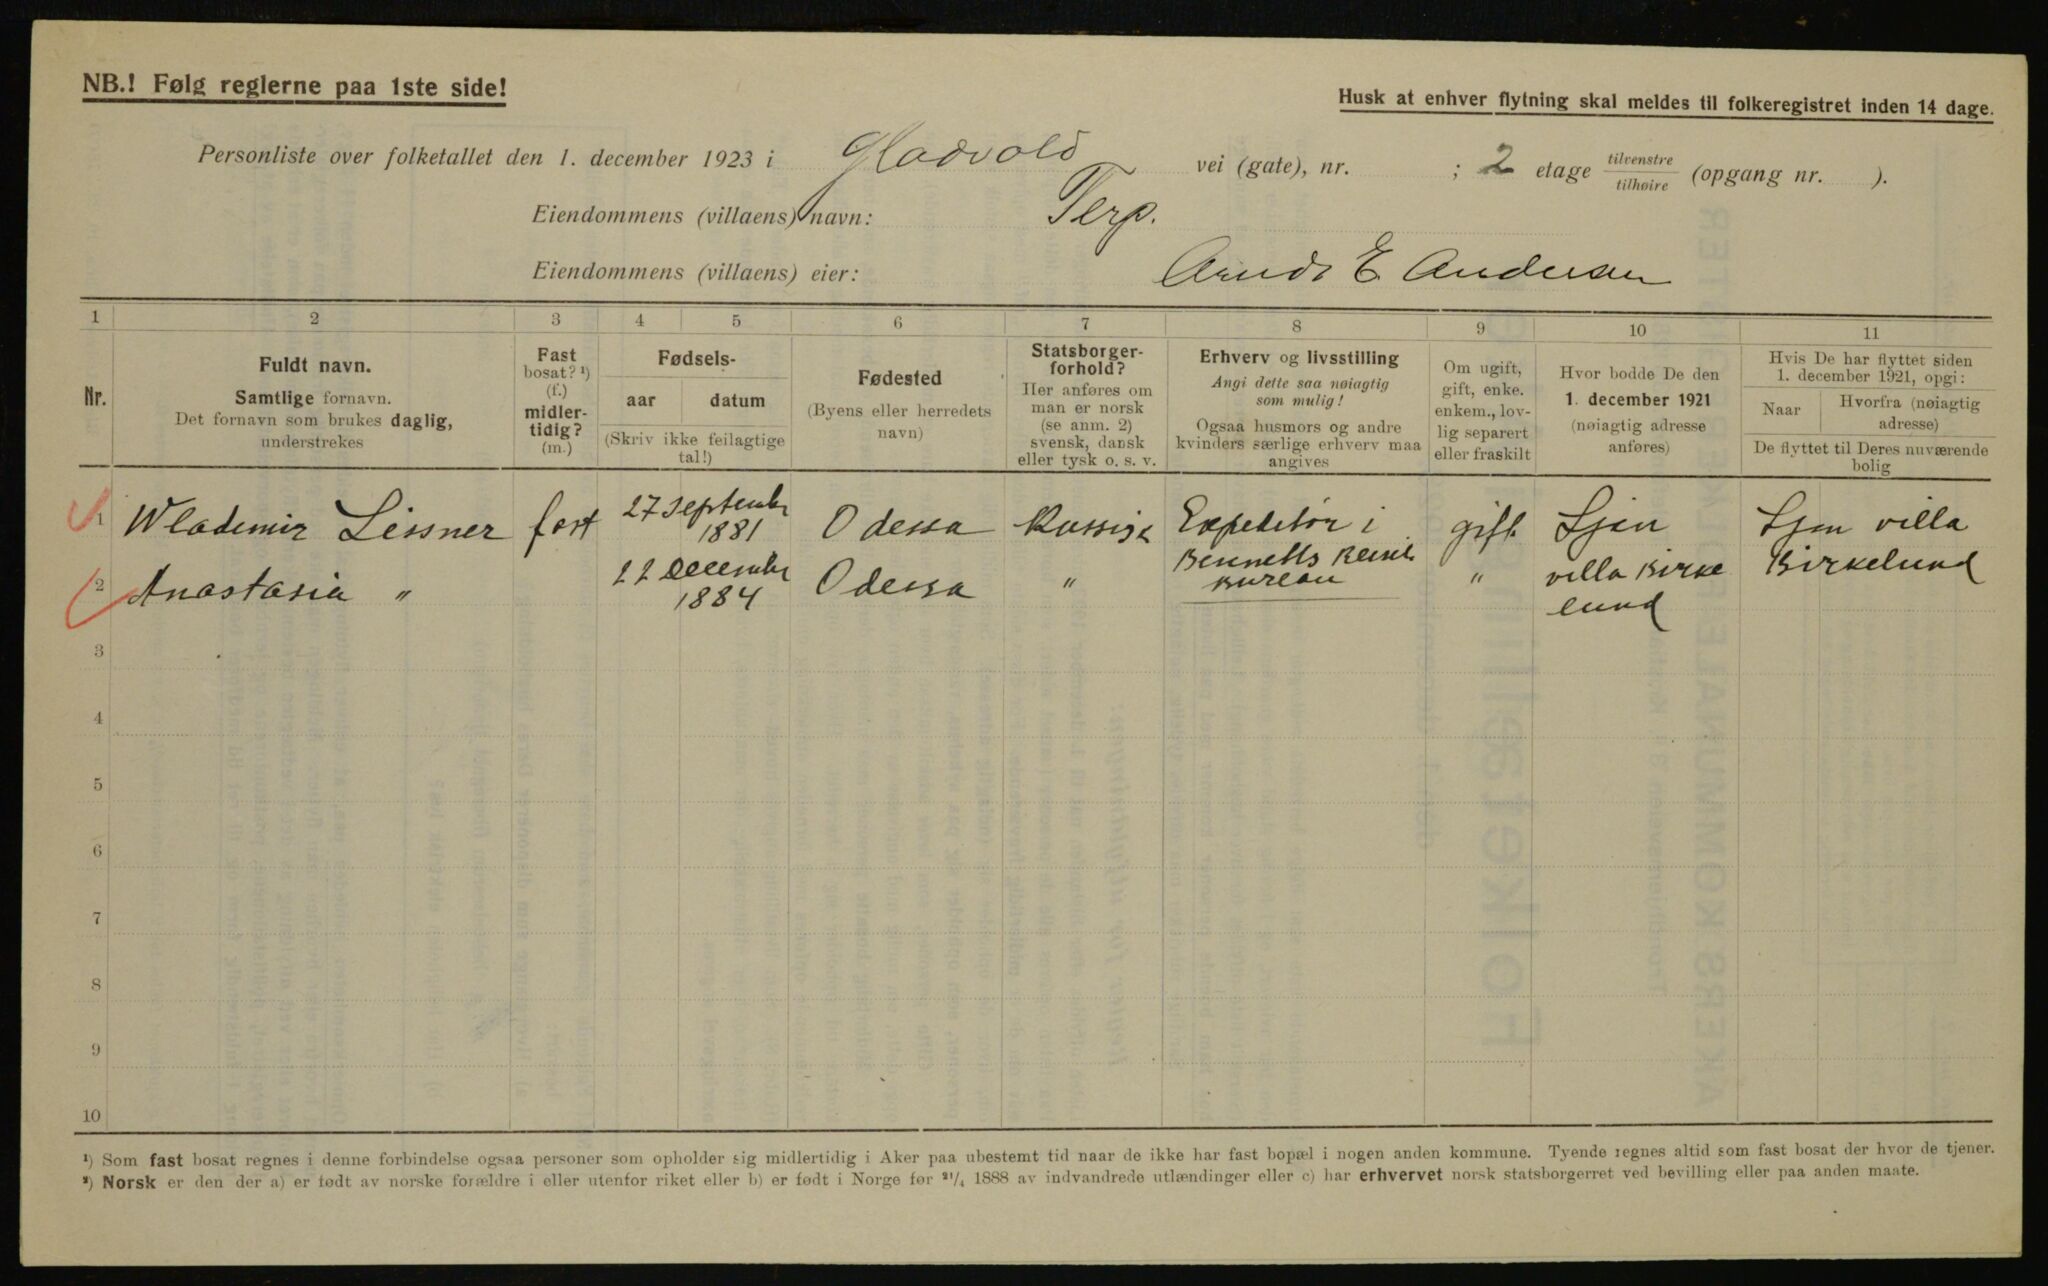 NB.! Følg reglerne paa 1ste side!
Husk at enhver flytning skal meldes til folkeregistret inden 14 dage.
Personliste over folketallet den 1. december 1923 i Gladvold vei (gate), nr. ; 2 etage tilvenstre tilhøire (opgang nr. ).
Eiendommens (villaens) navn: Terp.
Eiendommens (villaens) eier: Arndt E Andersen
1 2 3 4 5 6 7 8 9 10 11
Nr.
Fuldt navn.
Samtlige fornavn.
Det fornavn som brukes daglig,
understrekes
Fast
bosat? ¹)
(f.)
midler-
tidig?
(m.)
Fødsels-
aar datum
(Skriv ikke feilagtige
tal!)
Fødested
(Byens eller herredets
navn)
Statsborger-
forhold?
Her anføres om
man er norsk
(se anm. 2)
svensk, dansk
eller tysk o. s. v.
Erhverv og livsstilling
Angi dette saa nøiagtig
som mulig!
Ogsaa husmors og andre
kvinders særlige erhverv maa
angives
Om ugift,
gift, enke.
enkem., lov-
lig separert
eller fraskilt
Hvor bodde De den
1. december 1921
(nøiagtig adresse
anføres)
Hvis De har flyttet siden
1. december 1921, opgi:
Naar
Hvorfra (nøiagtig
adresse)
De flyttet til Deres nuværende
bolig
1 Wlademir Lissner fast 27 September 1881 Odessa Russisk Expeditør i Bennetts Reise Bureau gift Ljan villa Birke lund Ljan villa Birkelund
2 Anastasia " 22 December 1884 Odessa " "
3
4
5
6
7
8
9
10
¹) Som fast bosat regnes i denne forbindelse ogsaa personer som opholder sig midlertidig i Aker paa ubestemt tid naar de ikke har fast bopæl i nogen anden kommune. Tyende regnes altid som fast bosat der hvor de tjener.
²) Norsk er den der a) er født av norske forældre i eller utenfor riket eller b) er født i Norge før 21/4 1888 av indvandrede utlændinger eller c) har erhvervet norsk statsborgerret ved bevilling eller paa anden maate.